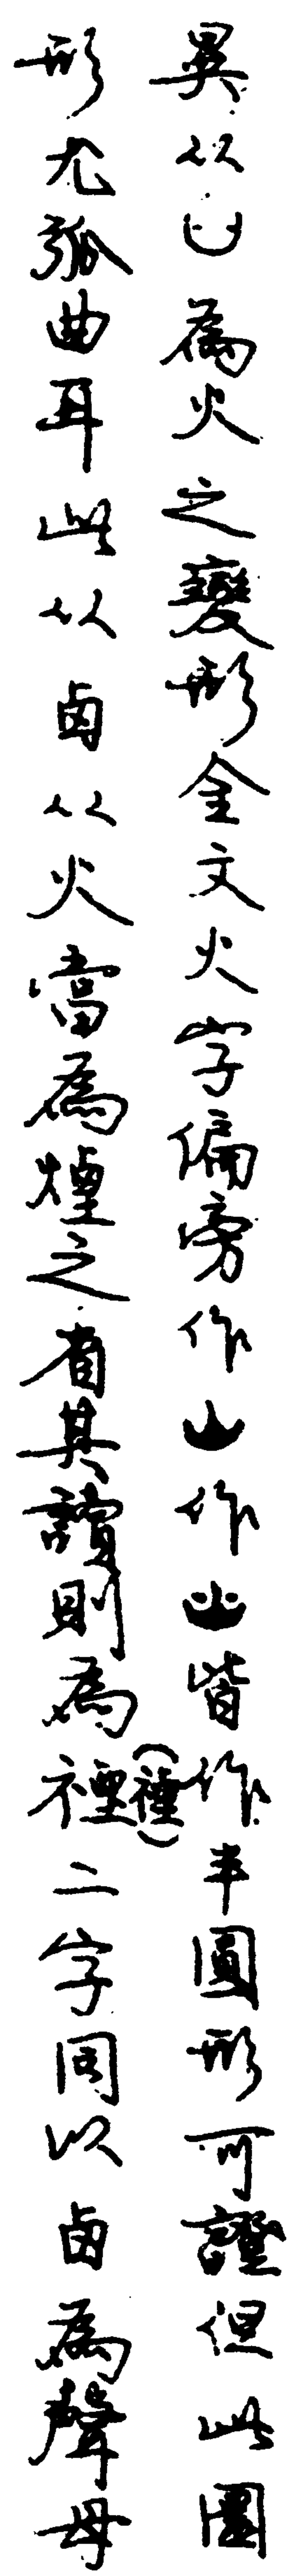 異从𠙴為火之變形金文火字偏旁作作皆作半圓形可證但此圓
形尤弧曲耳此从卤从火當為煙之省其讀則為禋(禋)二字同以卤為聲母